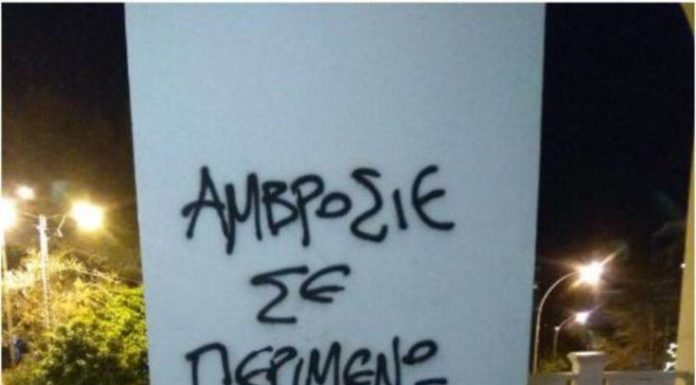 ΑΜΒΡΟΣΙΕ
ΣΕ
ΠΕΡΙΜΕΝΩ